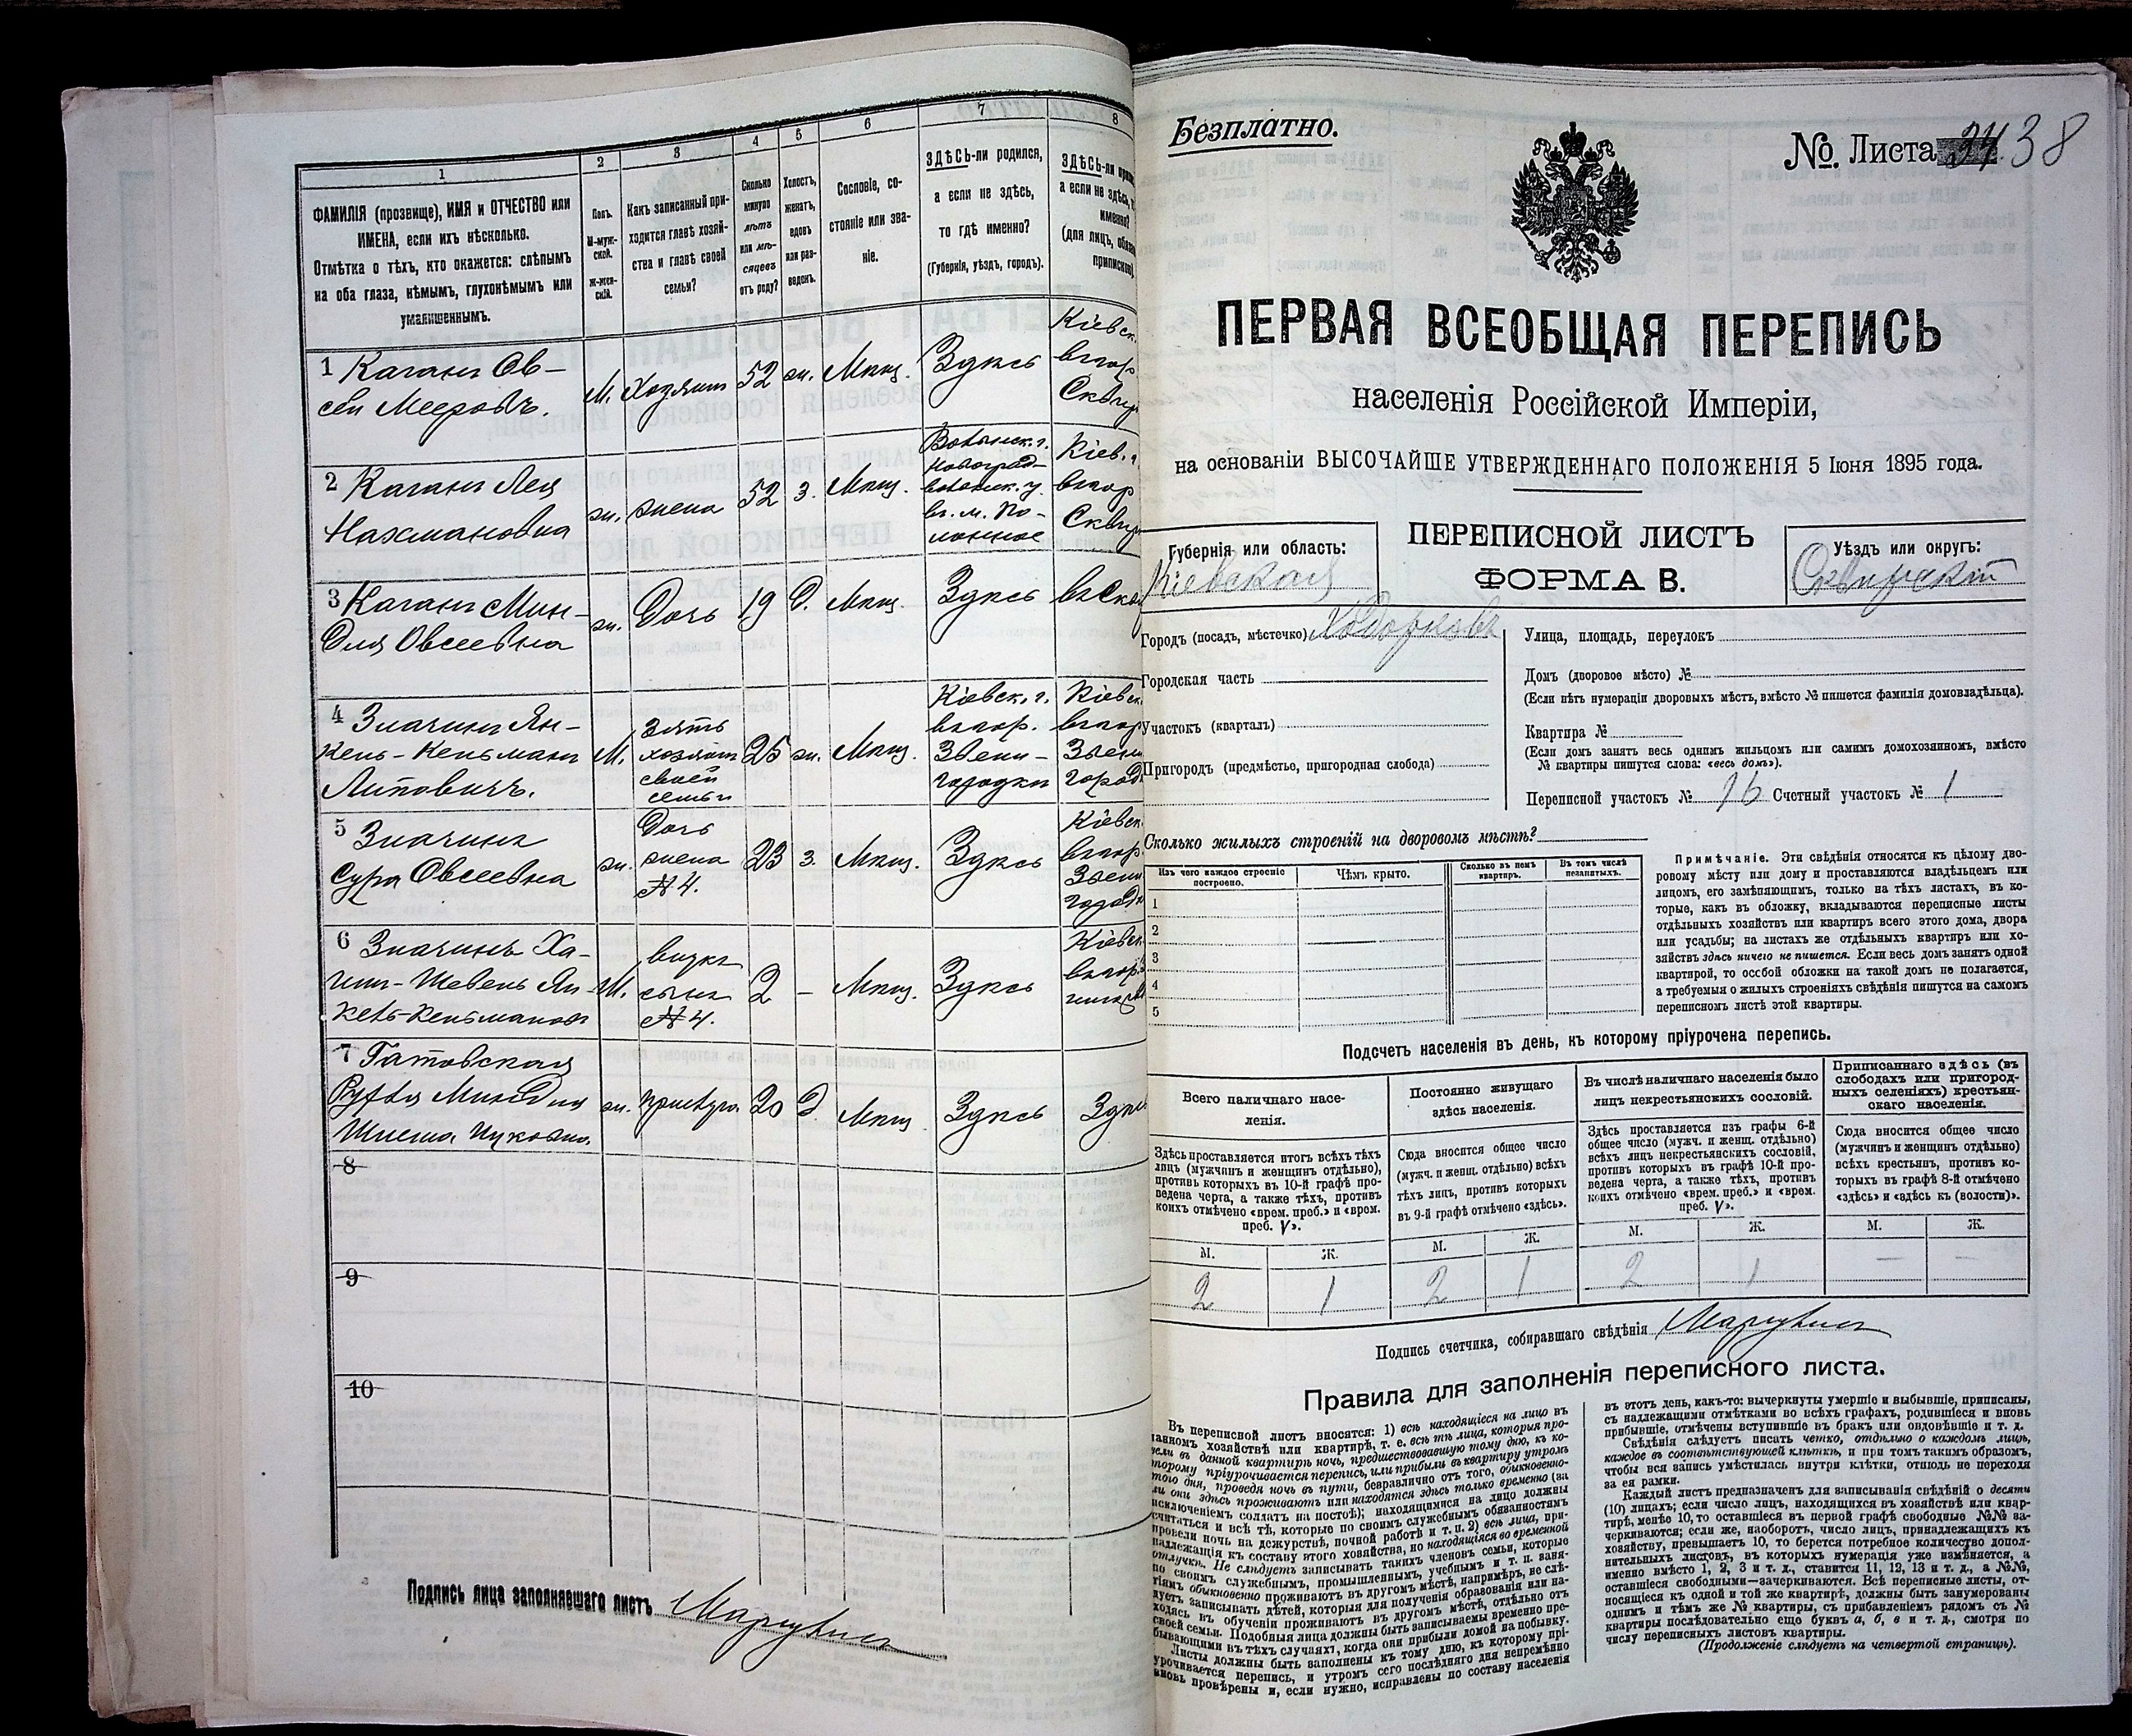 1
2
3
4
5
6
7
8
ФАМИЛІЯ (прозвище), ИМЯ и ОТЧЕСТВО или
ИМЕНА, если ихъ нѣсколько.
Отмѣтка о тѣхъ, кто окажется: слѣпымъ
на оба глаза, нѣмымъ, глухонѣмымъ или
умалишеннымъ.
Полъ.
М-муж-
ской.
Ж-жен-
скій.
Какъ записанный при-
ходится главѣ хозяй-
ства и главѣ своей
семьи?
Сколько
минуло
лѣтъ
или мѣ-
сяцевъ
отъ роду?
Холостъ,
женатъ,
вдовъ
или раз-
веденъ.
Сословіе, со-
стояніе или зва-
ніе.
ЗДѢСЬ-ли родился,
а если не здѣсь,
то гдѣ именно?
(Губернія, уѣздъ, городъ).
ЗДѢСЬ-ли
а если не здѣсь,
именно?
(для лицъ,
1 Каганъ Ов-
сей Мееровъ.
М. Хозяинъ 52 ж. Мѣщ. Здѣсь
Кіевск.
въ гор.
2 Каганъ Лея
Нахмановна
ж. жена 52 з. Мѣщ.
Волынск. г.
Новоград-
волынск. у.
въ м. По-
лонное
Кіев. г.
въ гор
3 Каганъ Мин-
для Овсеевна
ж. Дочь 19 д. Мѣщ. Здѣсь
4 Значинъ Ян-
кель-Кельманъ
Литовичъ.
М.
зять
хозяина
своей
семьи
25 ж. Мѣщ.
Кіевск. г.
въ гор.
Звени-
городки
Кіевск
въ гор
Звени
город
5 Значинъ
Сура Овсеевна
ж.
Дочь
жена
№ 4.
23 з. Мѣщ. Здѣсь
Кіевск.
въ гор.
Звени
6 Значинъ Ха-
Шевель Ян-
кель-Кельмановъ
М.
внукъ
сынъ
№ 4.
2 - Мѣщ. Здѣсь
Кіевск.
въ гор.
7 Гатовская
Миндля
ж. прислуга 20 д. Мѣщ. Здѣсь
8
9
10
Подпись лица заполнявшаго листъ
Безплатно.
№. Листа 38
ПЕРВАЯ ВСЕОБЩАЯ ПЕРЕПИСЬ
населенія Россійской Имперіи,
на основаніи ВЫСОЧАЙШЕ УТВЕРЖДЕННАГО ПОЛОЖЕНІЯ 5 Іюня 1895 года.
Губернія или область:
Кіевская
ПЕРЕПИСНОЙ ЛИСТЪ
ФОРМА В.
Уѣздъ или округъ:
Сквирскій
Городъ (посадъ, мѣстечко) Ходорковъ
Городская часть
Участокъ (кварталъ)
Пригородъ (предмѣстье, пригородная слобода)
Улица, площадь, переулокъ
Домъ (дворовое мѣсто) №
(Если нѣтъ нумераціи дворовыхъ мѣстъ, вмѣсто № пишется фамилія домовладѣльца).
Квартира №
(Если домъ занятъ весь однимъ жильцомъ или самимъ домохозяиномъ, вмѣсто
№ квартиры пишутся слова: «весь домъ»).
Переписной участокъ № 16 Счетный участокъ № 1
Сколько жилыхъ строеній на дворовомъ мѣстѣ?
Изъ чего каждое строеніе
построено.
Чѣмъ крыто.
Сколько въ немъ
квартиръ.
Въ томъ числѣ
незанятыхъ.
1
2
3
4
5
Примѣчаніе. Эти свѣдѣнія относятся къ цѣлому дво-
ровому мѣсту или дому и проставляются владѣльцемъ или
лицомъ, его замѣняющимъ, только на тѣхъ листахъ, въ ко-
торые, какъ въ обложку, вкладываются переписные листы
отдѣльныхъ хозяйствъ или квартиръ всего этого дома, двора
или усадьбы; на листахъ же отдѣльныхъ квартиръ или хо-
зяйствъ здѣсь ничего не пишется. Если весь домъ занятъ одной
квартирой, то особой обложки на такой домъ не полагается,
а требуемыя о жилыхъ строеніяхъ свѣдѣнія пишутся на самомъ
переписномъ листѣ этой квартиры.
Подсчетъ населенія въ день, къ которому пріурочена перепись.
Всего наличнаго насе-
ленія.
Здѣсь проставляется итогъ всѣхъ тѣхъ
лицъ (мужчинъ и женщинъ отдѣльно),
противъ которыхъ въ 10-й графѣ про-
ведена черта, а также тѣхъ, противъ
коихъ отмѣчено «врем. преб.» и «врем.
преб. V».
Постоянно живущаго
здѣсь населенія.
Сюда вносится общее число
(мужч. и женщ. отдѣльно) всѣхъ
тѣхъ лицъ, противъ которыхъ
въ 9-й графѣ отмѣчено «здѣсь».
Въ числѣ наличнаго населенія было
лицъ некрестьянскихъ сословій.
Здѣсь проставляется изъ графы 6-й
общее число (мужч. и женщ. отдѣльно)
всѣхъ лицъ некрестьянскихъ сословій,
противъ которыхъ въ графѣ 10-й про-
ведена черта, а также тѣхъ, противъ
коихъ отмѣчено «врем. преб.» и «врем.
преб. V».
Приписаннаго здѣсь (въ
слободахъ или пригород-
ныхъ селеніяхъ) крестьян-
скаго населенія.
Сюда вносится общее число
(мужчинъ и женщинъ отдѣльно)
всѣхъ крестьянъ, противъ ко-
торыхъ въ графѣ 8-й отмѣчено
«здѣсь» и «здѣсь къ (волости)».
М. Ж. М. Ж. М. Ж. М. Ж.
2 1 2 1 2 1 — —
Подпись счетчика, собиравшаго свѣдѣнія
Правила для заполненія переписного листа.
Въ переписной листъ вносятся: 1) всѣ находящіеся на лицо въ
данномъ хозяйствѣ или квартирѣ, т. е. всѣ тѣ лица, которыя про-
вели въ данной квартирѣ ночь, предшествовавшую тому дню, къ ко-
торому пріурочивается перепись, или прибыли въ квартиру утромъ
того дня, проведя ночь въ пути, безразлично отъ того, обыкновенно-
ли они здѣсь проживаютъ или находятся здѣсь только временно (за
исключеніемъ солдатъ на постоѣ); находящимися на лицо должны
считаться и всѣ тѣ, которые по своимъ служебнымъ обязанностямъ
провели ночь на дежурствѣ, ночной работѣ и т. п. 2) всѣ лица, при-
надлежащія къ составу этого хозяйства, но находящіяся во временной
отлучкѣ. Не слѣдуетъ записывать такихъ членовъ семьи, которые
по своимъ служебнымъ, промышленнымъ, учебнымъ и т. п. заня-
тіямъ обыкновенно проживаютъ въ другомъ мѣстѣ, напримѣръ, не слѣ-
дуетъ записывать дѣтей, которыя для полученія образованія или на-
ходясь въ обученіи проживаютъ въ другомъ мѣстѣ, отдѣльно отъ
своей семьи. Подобныя лица должны быть записываемы временно пре-
бывающими въ тѣхъ случаяхъ, когда они прибыли домой на побывку.
Листы должны быть заполнены къ тому дню, къ которому прі-
урочивается перепись, и утромъ сего послѣдняго дня непремѣнно
вновь провѣрены и, если нужно, исправлены по составу населенія
въ этотъ день, какъ-то: вычеркнуты умершіе и выбывшіе, приписаны,
съ надлежащими отмѣтками во всѣхъ графахъ, родившіеся и вновь
прибывшіе, отмѣчены вступившіе въ бракъ или овдовѣвшіе и т. д.
Свѣдѣнія слѣдуетъ писать четко, отдѣльно о каждомъ лицѣ,
каждое въ соотвѣтствующей клѣткѣ, и при томъ такимъ образомъ,
чтобы вся запись умѣстилась внутри клѣтки, отнюдь не переходя
за ея рамки.
Каждый листъ предназначенъ для записыванія свѣдѣній о десяти
(10) лицахъ; если число лицъ, находящихся въ хозяйствѣ или квар-
тирѣ, менѣе 10, то оставшіеся въ первой графѣ свободные №№ за-
черкиваются; если же, наоборотъ, число лицъ, принадлежащихъ къ
хозяйству, превышаетъ 10, то берется потребное количество допол-
нительныхъ листовъ, въ которыхъ нумерація уже измѣняется, а
именно вмѣсто 1, 2, 3 и т. д., ставится 11, 12, 13 и т. д., а №№,
оставшіеся свободными—зачеркиваются. Всѣ переписные листы, от-
носящіеся къ одной и той же квартирѣ, должны быть занумерованы
однимъ и тѣмъ же № квартиры, съ прибавленіемъ рядомъ съ №
квартиры послѣдовательно еще буквъ а, б, в и т. д., смотря по
числу переписныхъ листовъ квартиры.
(Продолженіе слѣдуетъ на четвертой страницѣ).